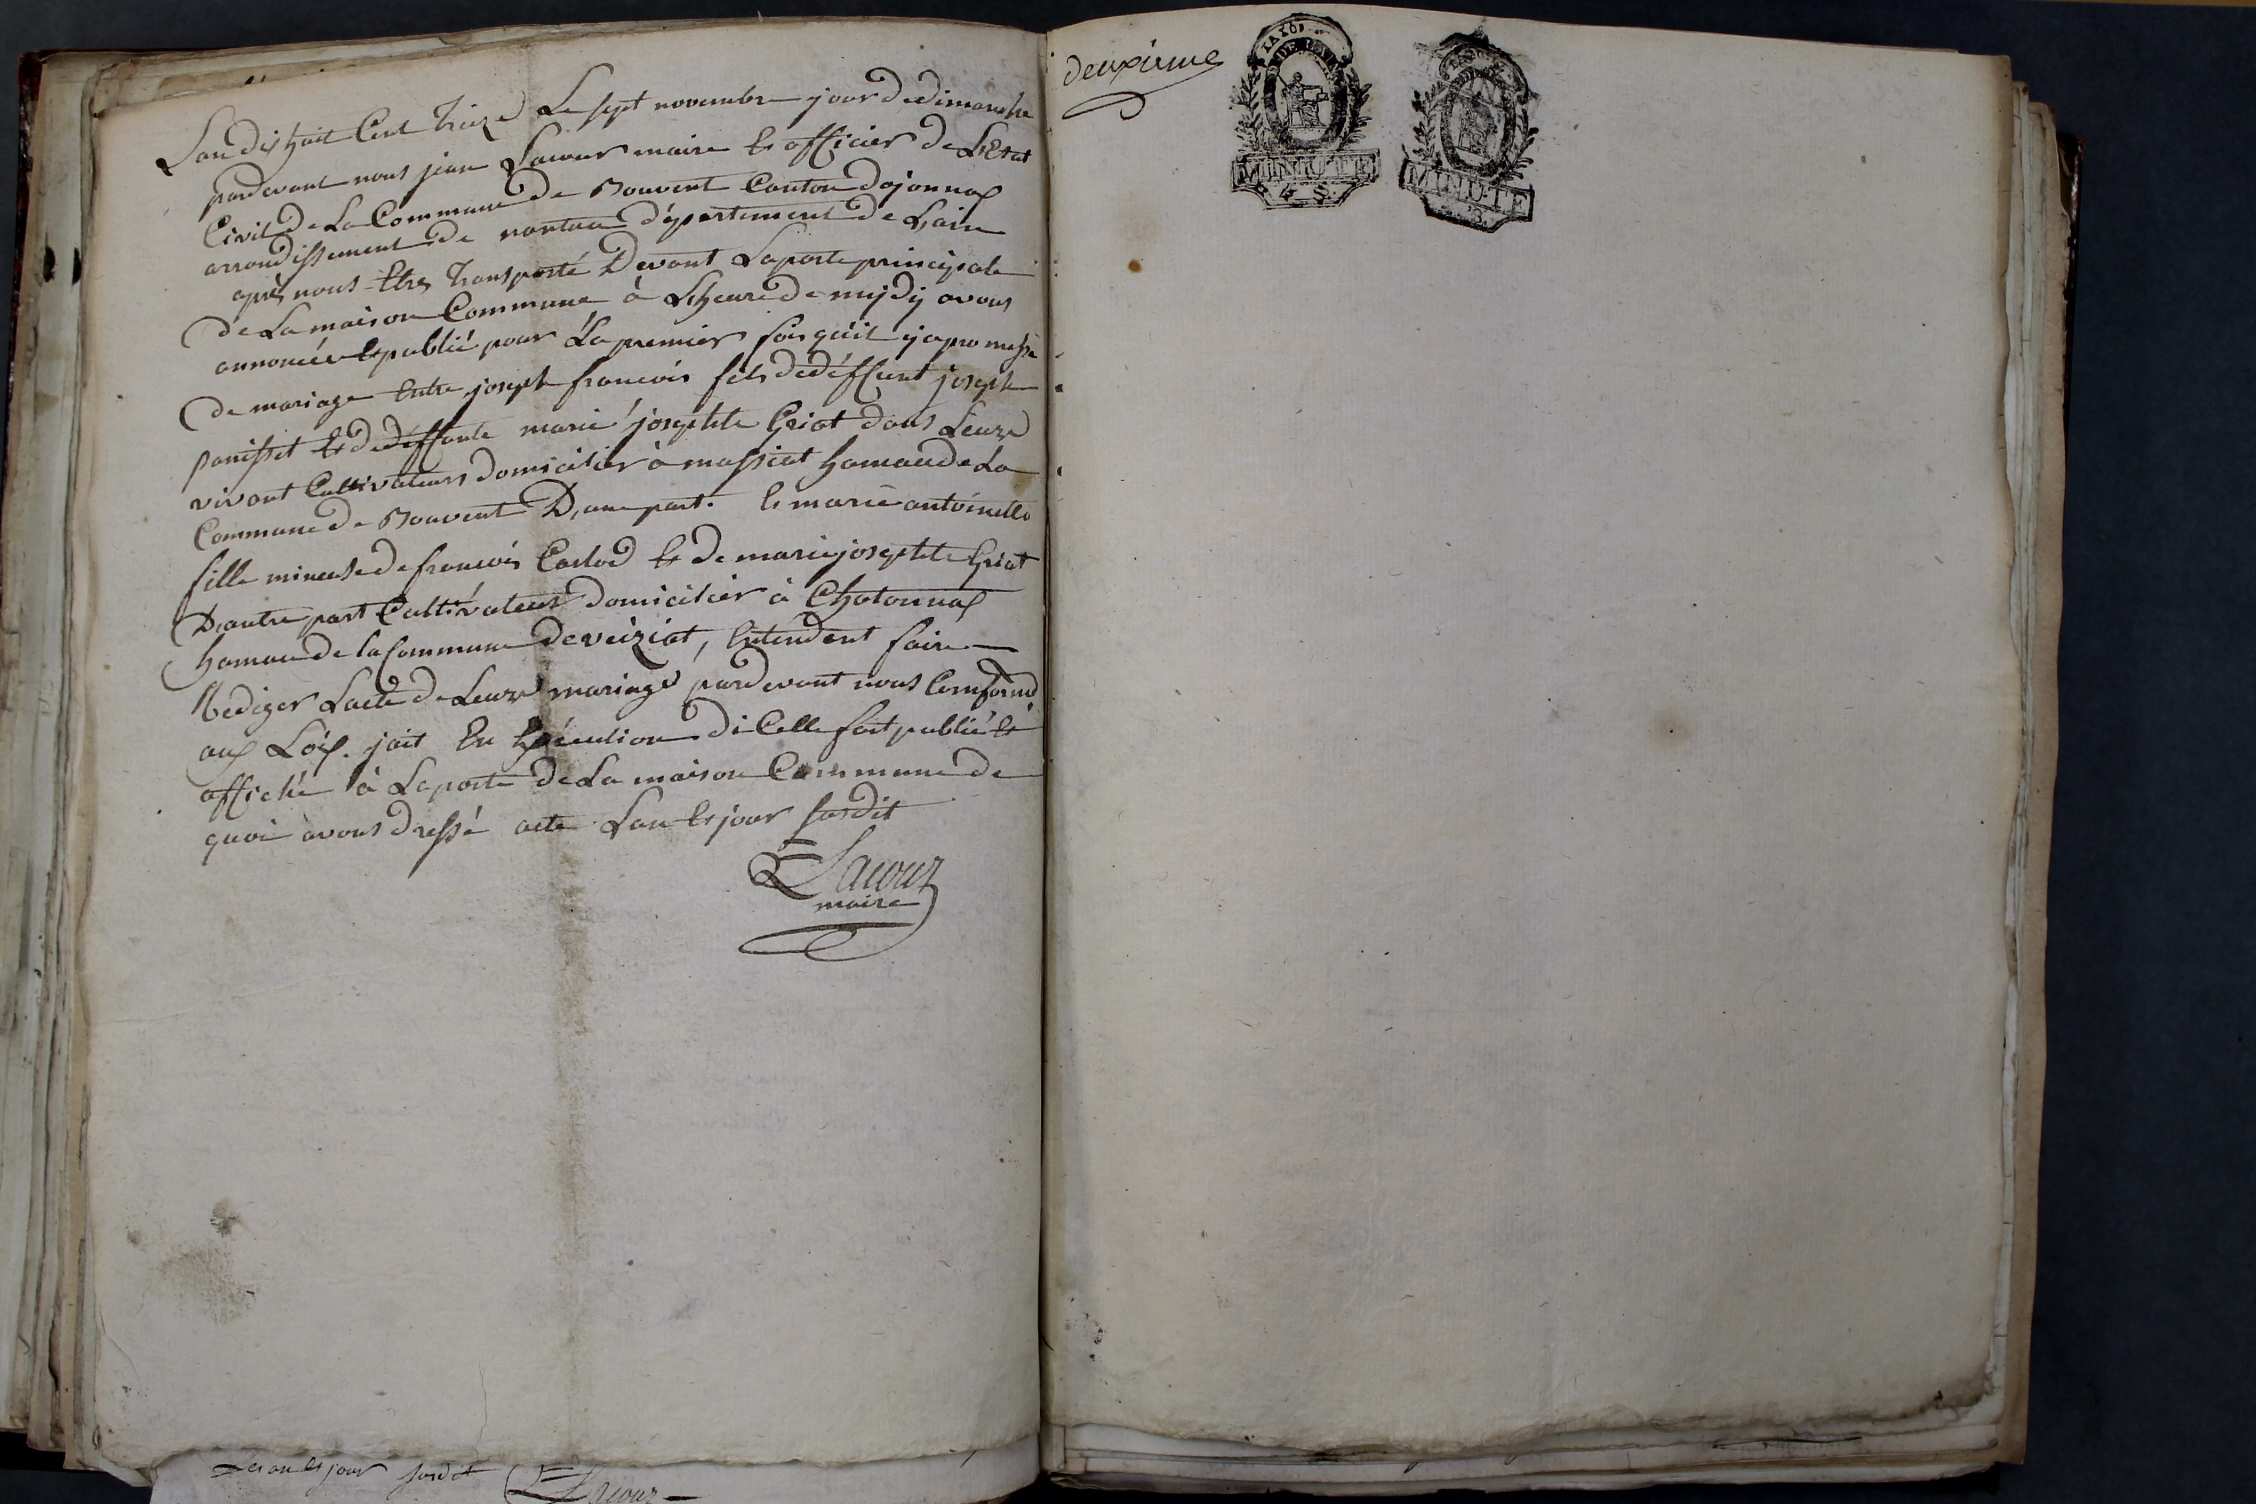 Lan dix huit Cent Treize Le sept novembre jour de dimanche
pardevant nous jean Lacour maire et officier de LEtat
Civil de La Commune de Bouvent Canton dojonnax
arrondissement de nantua département de Lain
après nous Etres Transporté Devant La porte principale
de La maison Commune à Lheure de mydÿ avons
annoncér et publié pour La premier fois quil y a promesse
de mariage Entre joseph francois fils de déffunt joseph
panisset et de deffunte marie josephte Griot dans Leure
vivant Cultivateurs domicilier à massiat hamau de La
Commune de Bouvent D,une part. Et marie antoinette
fille mineuse de francois Carlod Et de marie josephte Griot
D,autre part Cultivateur domicilier à Chatonnax
hamau de la Commune de veiziat, Entendent faire
Rediger Lacte de Leure mariage pardevant nous Comformé
aux Loix. jait En Exécution di Celle fait publié et
affiché à La porte de La maison Commune de
quoi avons dressé acte Lan et jour susdit
Lacour
maire
Les an et jour susdit Lacour
deuxieme
MINUTE
MINUTE